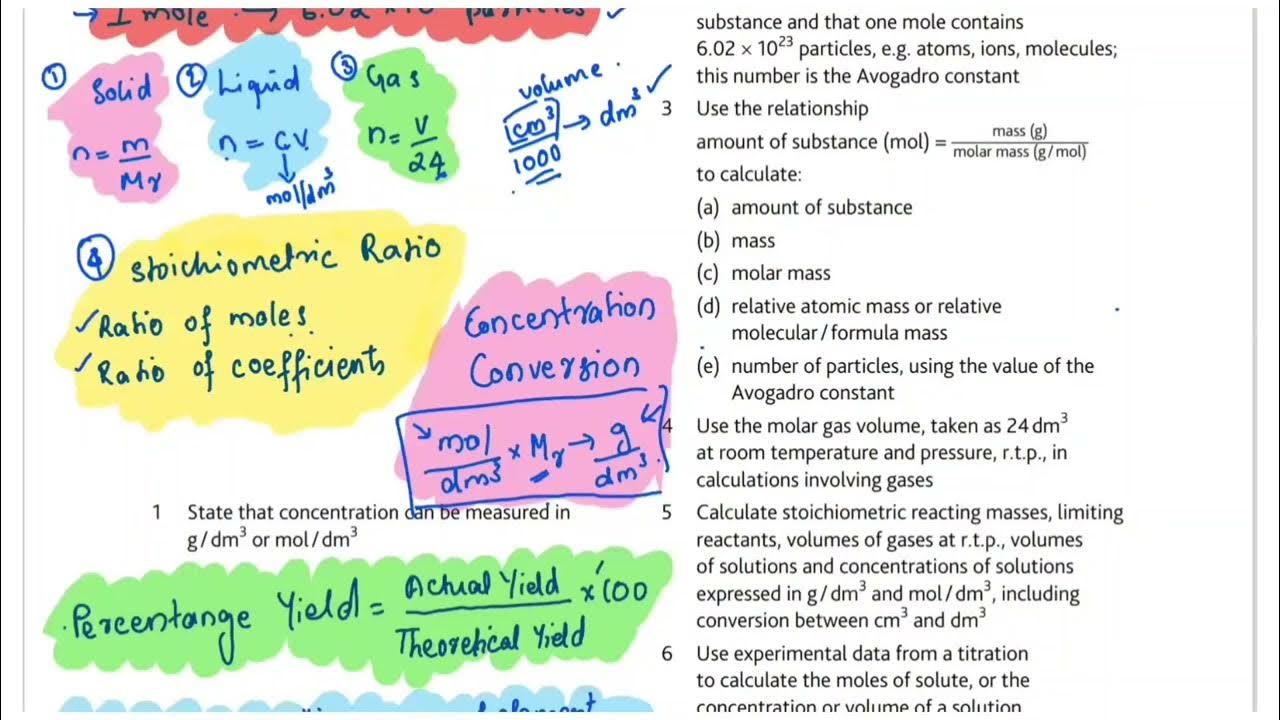 → 1 mole → 6.02 × 10 particles ✓
① Solid
n = m/Mr
② Liquid
n = CV
↓
mol/dm³
③ Gas
n = V/24
volume.
cm³/1000 → dm³ ✓
④ Stoichiometric Ratio
✓ Ratio of moles.
✓ Ratio of coefficients
Concentration
Conversion
mol/dm³ × Mr → g/dm³.
1 State that concentration can be measured in
g/dm³ or mol/dm³
Percentange Yield = Actual Yield/Theoretical Yield × 100
substance and that one mole contains
6.02 × 10²³ particles, e.g. atoms, ions, molecules;
this number is the Avogadro constant
3 Use the relationship
amount of substance (mol) = mass (g)/molar mass (g/mol)
to calculate:
(a) amount of substance
(b) mass
(c) molar mass
(d) relative atomic mass or relative
molecular/formula mass
(e) number of particles, using the value of the
Avogadro constant
4 Use the molar gas volume, taken as 24 dm³
at room temperature and pressure, r.t.p., in
calculations involving gases
5 Calculate stoichiometric reacting masses, limiting
reactants, volumes of gases at r.t.p., volumes
of solutions and concentrations of solutions
expressed in g/dm³ and mol/dm³, including
conversion between cm³ and dm³
6 Use experimental data from a titration
to calculate the moles of solute, or the
concentration or volume of a solution